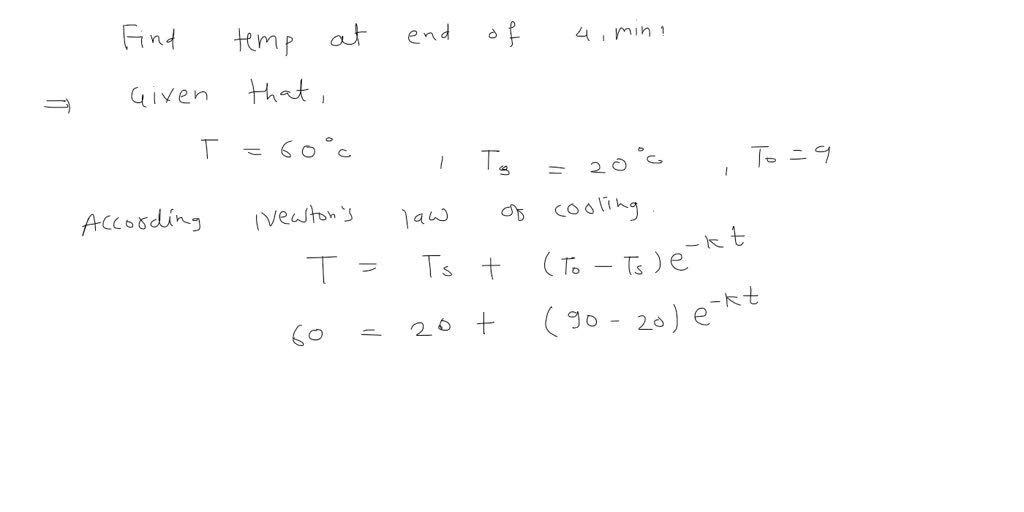 Find temp at end of 4 min.
⇒ Given that,
T = 60°c , Ts = 20°c , To = 9
According Newton's law of cooling.
T = Ts + (To - Ts) e^-kt
60 = 20 + (90 - 20) e^-kt